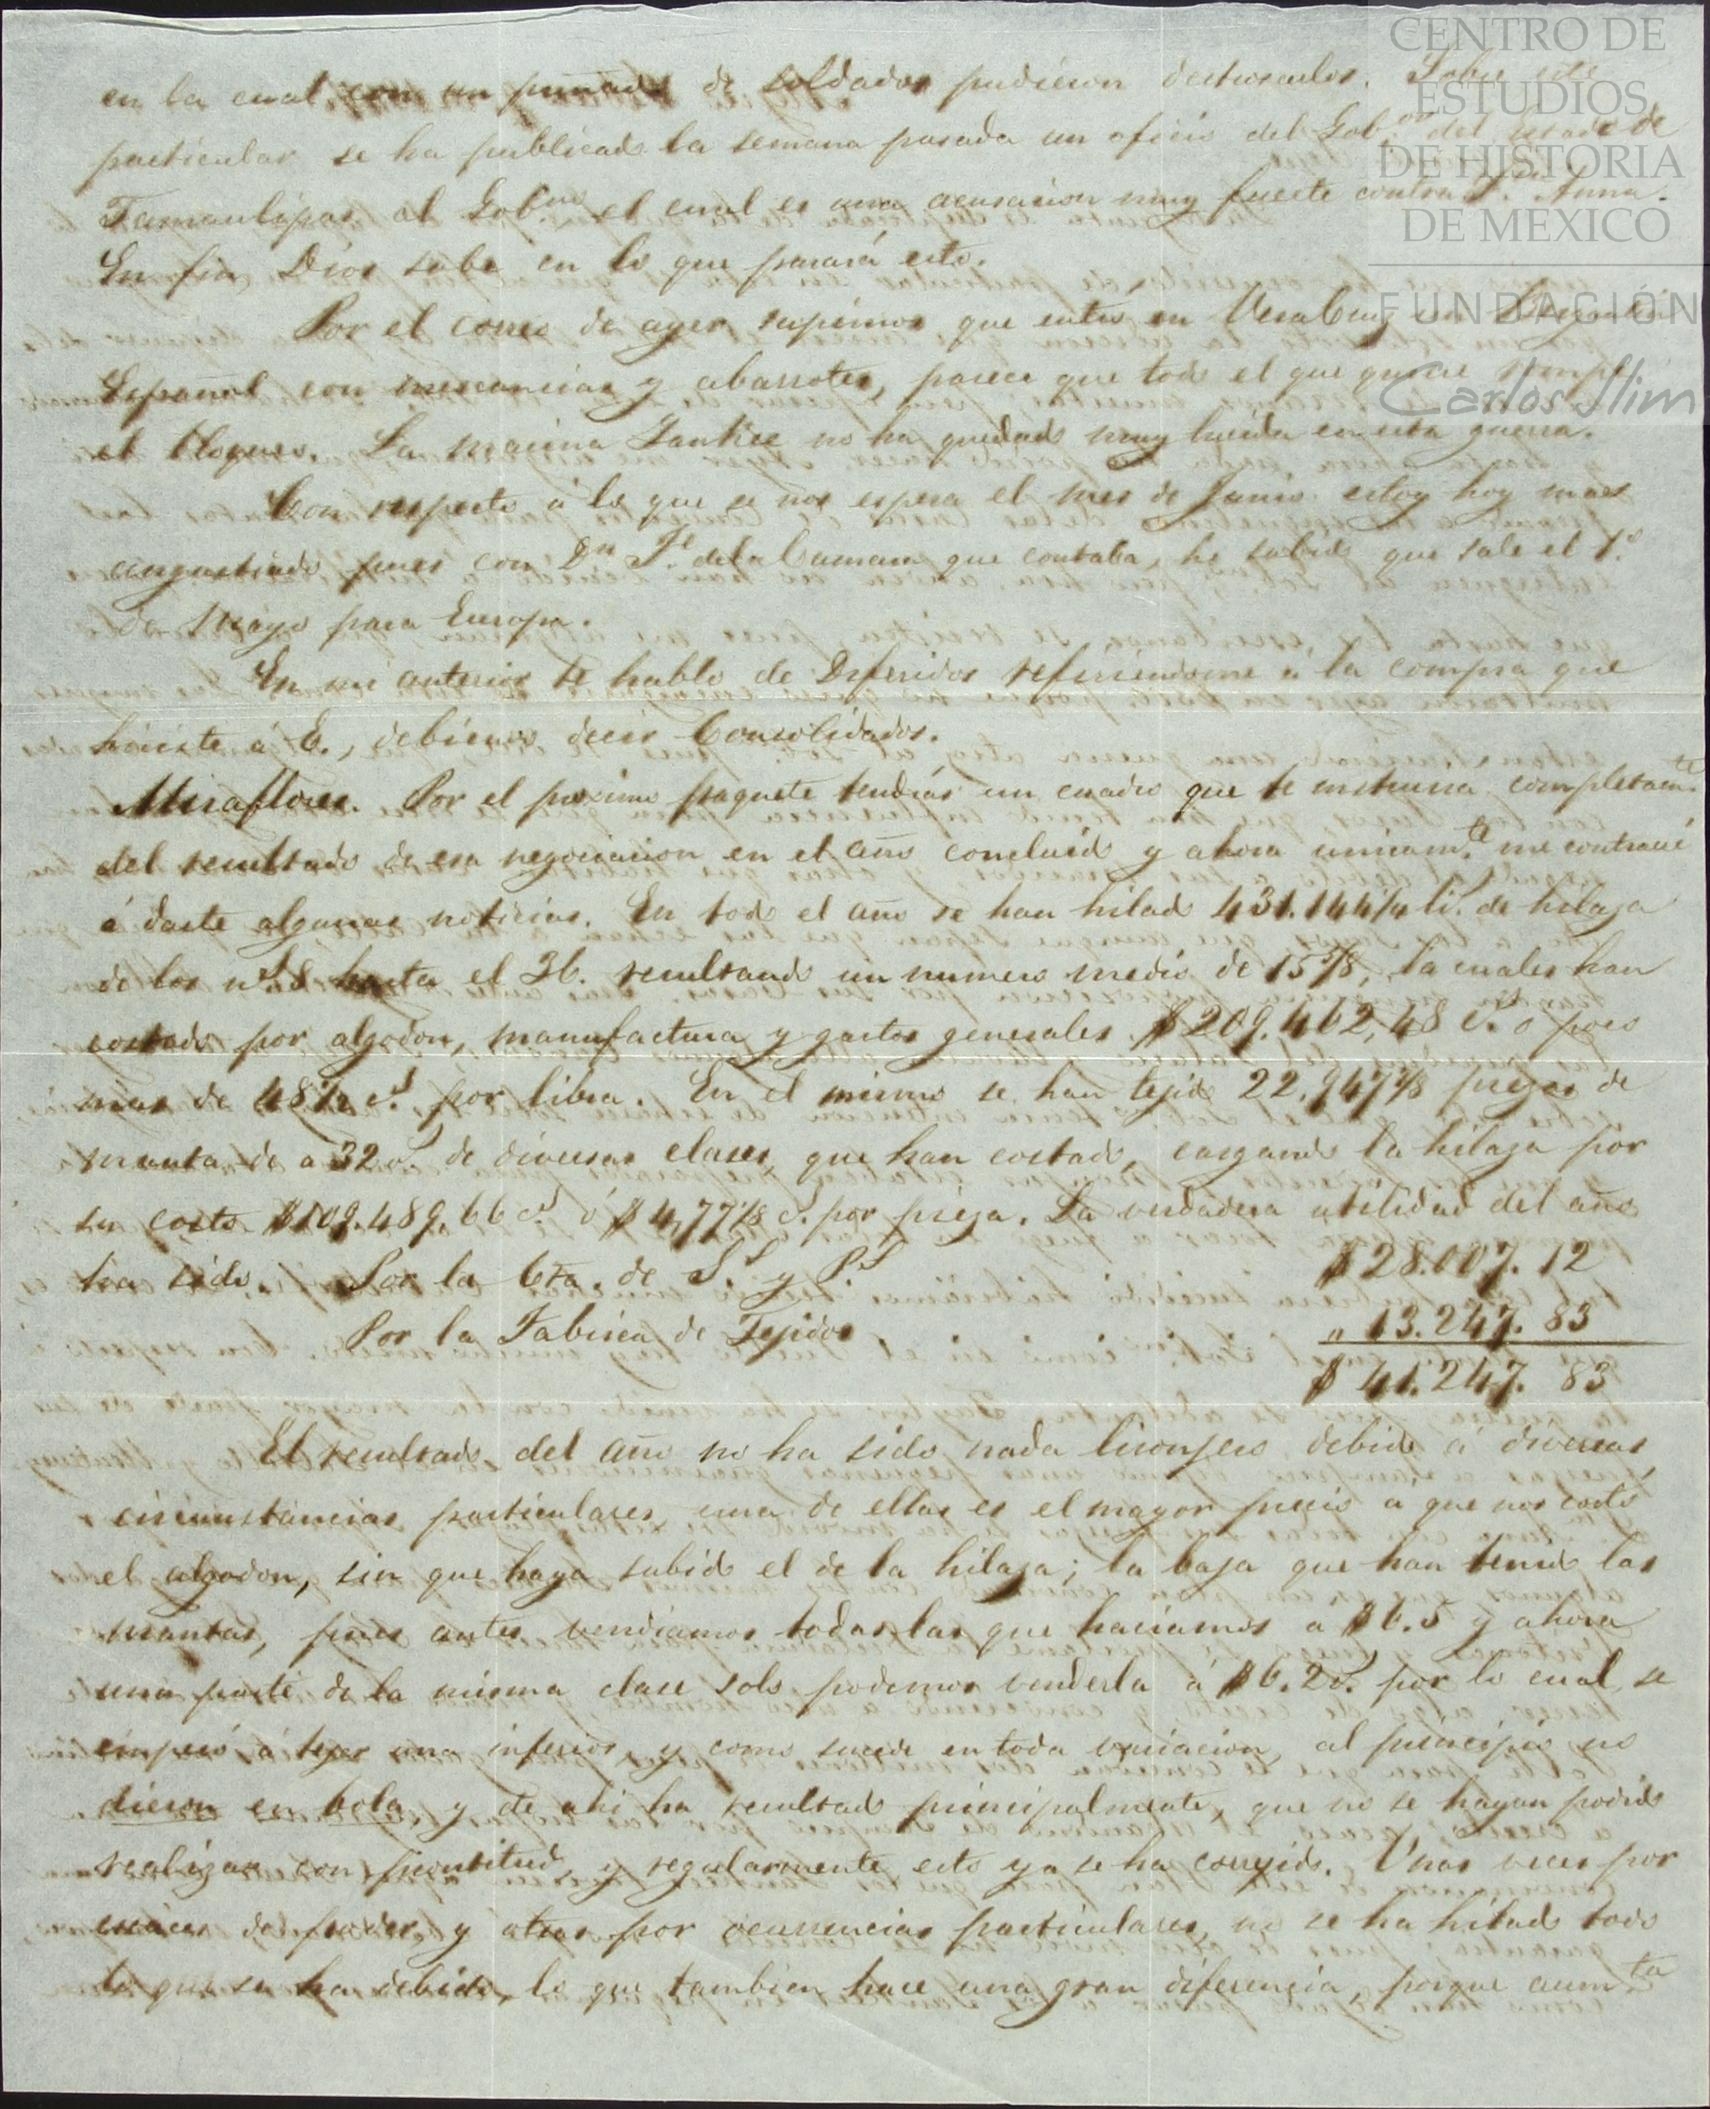 CENTRO DE
ESTUDIOS
DE HISTORIA
DE MEXICO
FUNDACIÓN
Carlos Slim
en la cual, con un puñado de soldados pudieron destrosarlos. Sobre este
particular se ha publicado la semana pasada un oficio del Gob.or del Estado de
Tamaulipas al Gob.no el cual es una acusacion muy fuerte contra Sta. Anna.
En fin, Dios sabe en lo que parará esto.
Por el correo de ayer supimos que entró en VeraCruz un Bergantin
Español con mercancias y abarrotes, parece que todo el que quiere rompe
el bloqueo. La marina Yankee no ha quedado muy lucida en esta guerra.
Con respecto á lo que se nos espera el mes de Junio estoy hoy mas
angustiado pues con Dn. Fe. de la Camara que contaba, he sabido que sale el 1.o
de Mayo para Europa.
En mi anterior te hablo de Diferidos refiriendome á la compra que
hiciste á E., debiendo decir Consolidados.
Miraflores. Por el proximo paquete tendrás un cuadro que te instruira completam.te
del resultado de esa negociacion en el año concluido y ahora unicam.te me contraeré
á darte algunas noticias. En todo el año se han hilado 431.144 1/4 lis. de hilaza
de los ns. 8 hasta el 36. resultando un numero medio de 15 5/8, la cuales han
costado por algodon, manufactura y gastos generales $209.462,48 cs. ó poco
mas de 48 1/2 cs. por libra. En el mismo se han tejido 22.947 7/8 piezas de
manta de a 32 vs. de diversas clases, que han costado, cargando la hilaza por
su costo $109.489.66 cs. ó $4,77 1/8 cs. por pieza. La verdadera utilidad del año
ha sido. Por la Cta. de Gs. y Ps. $28.007.12
Por la Fabrica de Tejidos. " 13.247.83
$ 41.247.83
El resultado del año no ha sido nada lisonjero debido á diversas
circunstancias particulares, una de ellas es el mayor precio a que nos costó
el algodon, sin que haya subido el de la hilaza; la baja que han tenido las
mantas, pues antes vendiamos todas las que haciamos á $6.5 y ahora
una parte de la misma clase solo podemos venderla á $6.2 rs. por lo cual se
empesó á tejer una inferior, y como sucede en toda variacion, al principio no
dieron en bola, y de ahi ha resultado principalmente, que no se hayan podido
realizar con prontitud, y regularmente esto ya se ha corregido. Unas veces por
escases de poder, y otras por ocurrencias particulares, no se ha hilado todo
lo que se ha debido, lo que tambien hace una gran diferencia, porque aum.ta